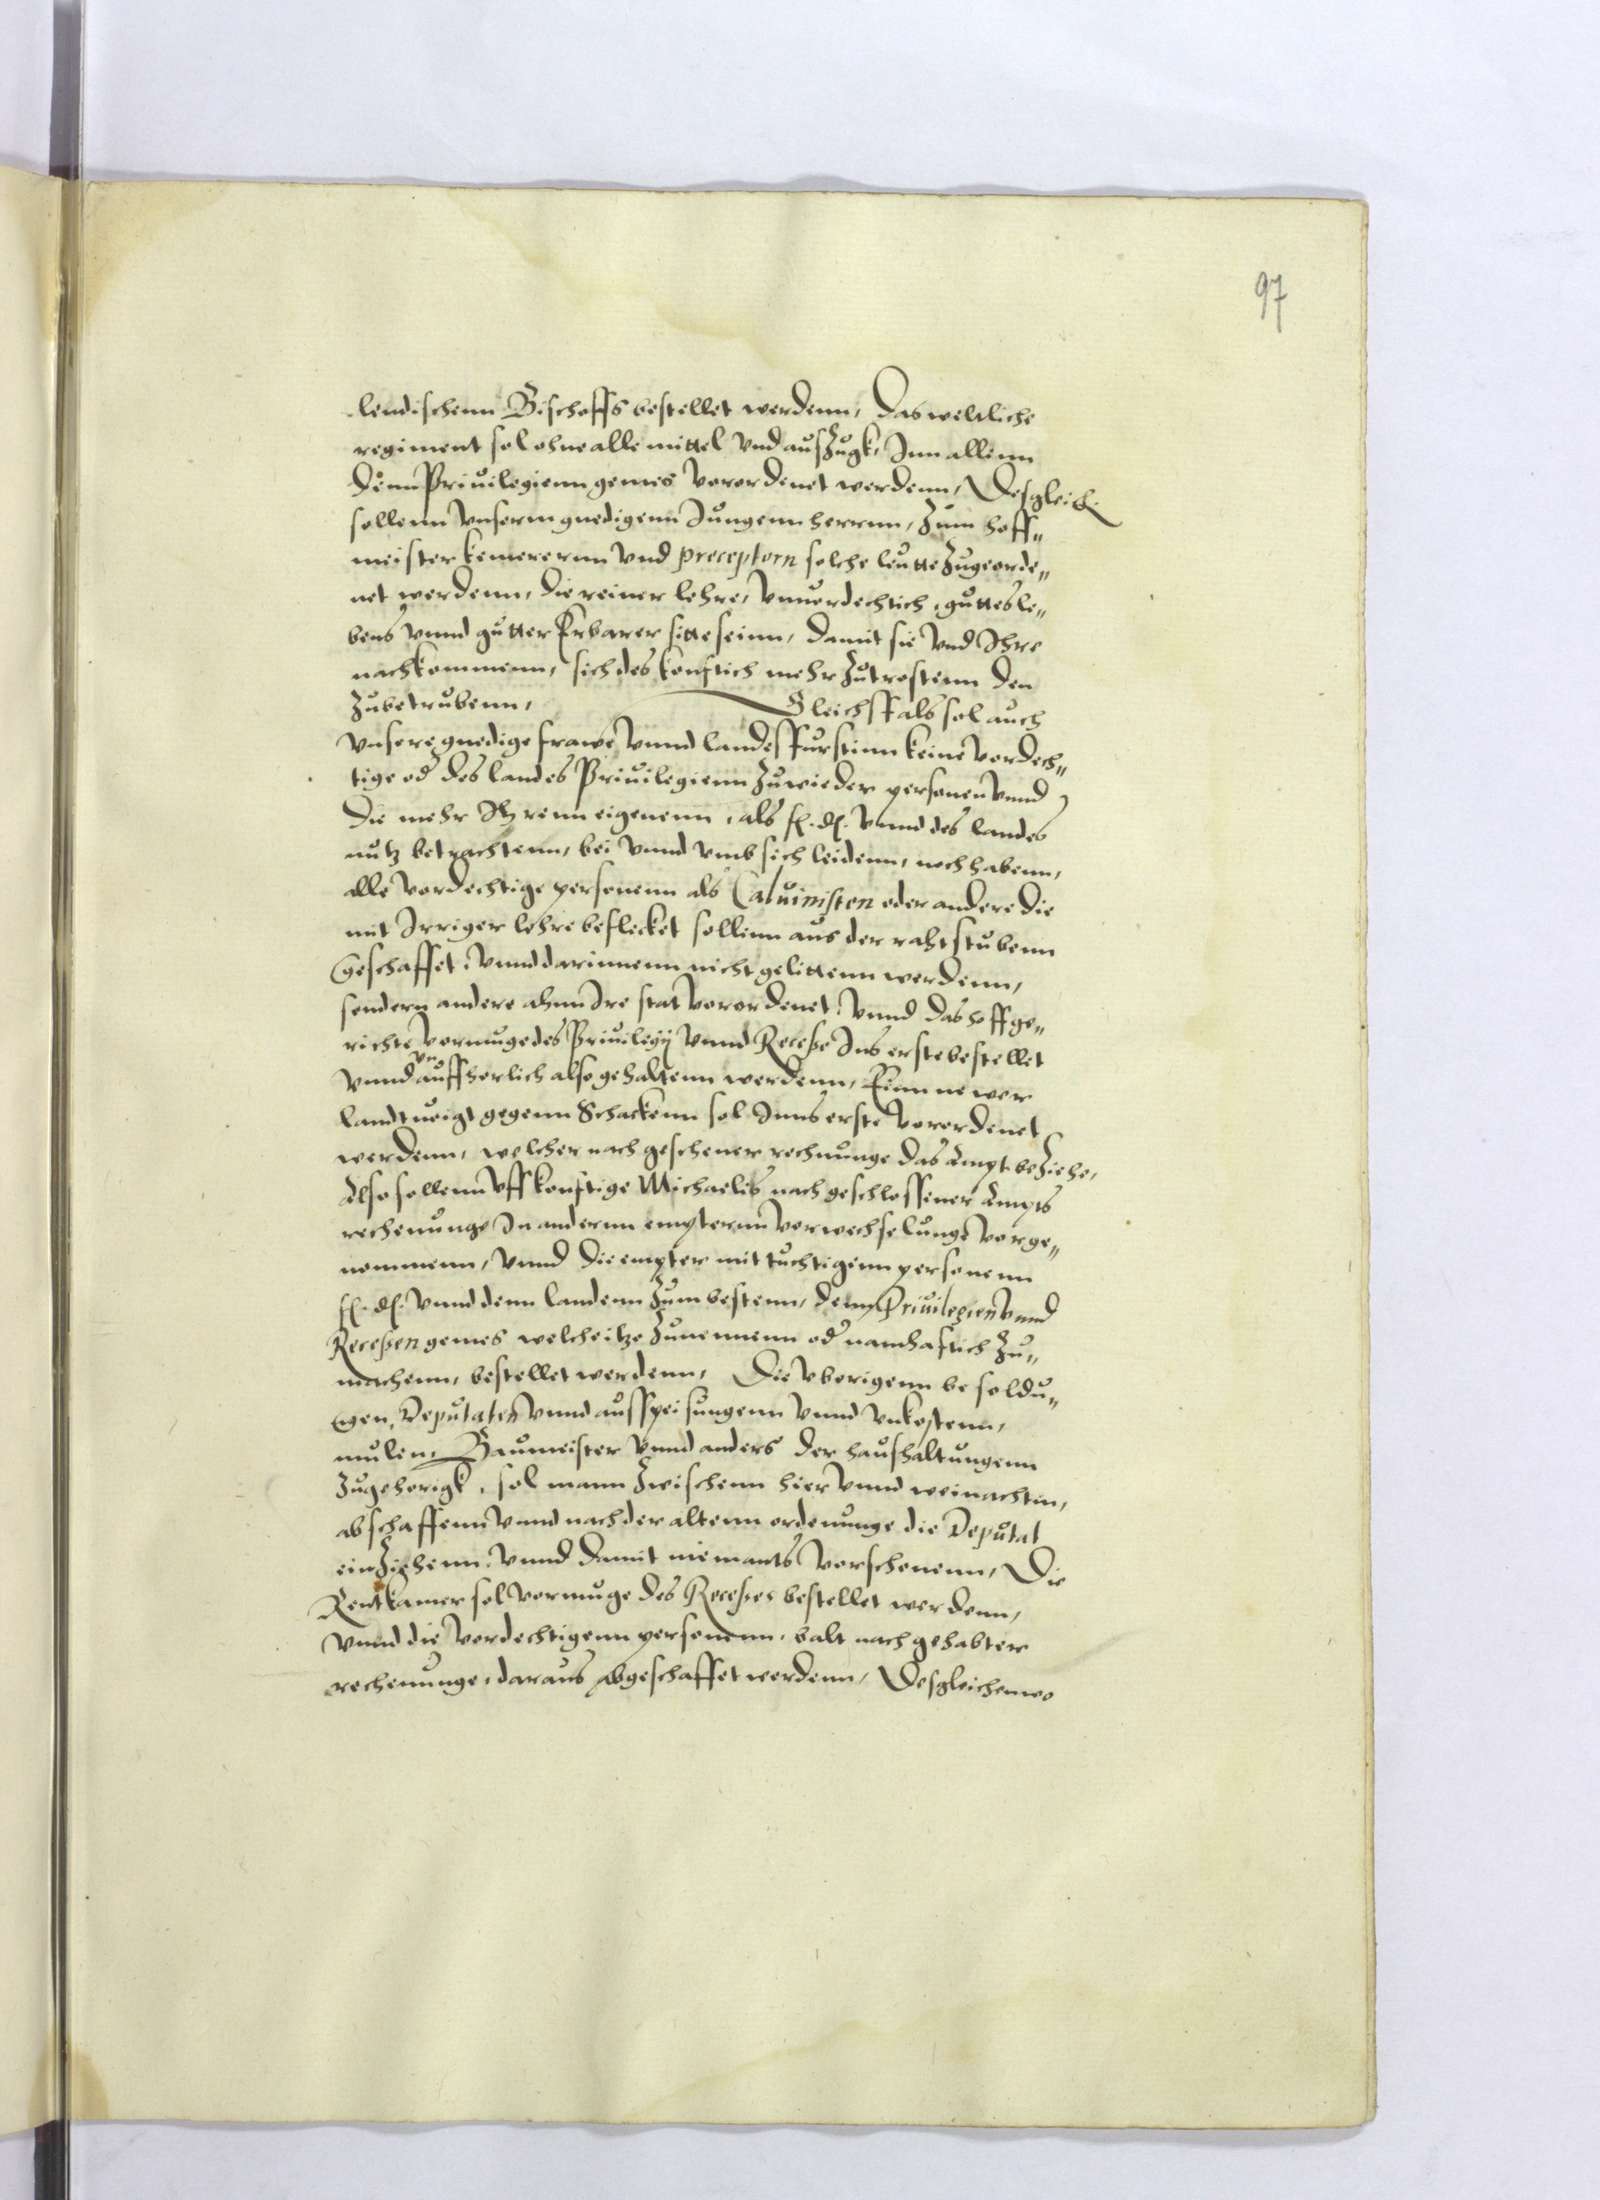 97
lendischenn Bischoffs bestellet werdenn, Das weltliche
regiment sol ohne alle mittel vnd auszugk, Inn allenn
denn Priuilegienn gemes verordenet werdenn, Desgleich.
sollenn vnserm gnedigenn Jungenn herrnn, Zum hoff„
meister kemerernn vnd preceptorn solche leutte zugeorde„
net werdenn, die reiner lehre, vnuerdechtich, guttes le„
bens vnnd gutter Erbarer sitte seinn, damit sie vnd Ihre
nachkommenn, sich des konftich mehr zutrostenn den
zubetrubenn, Gleichsfals sol auch
vnsere gnedige frawe vnnd landesfurstinn keine verdech„
tige od des landes Priuilegienn zuwieder personen vnnd
die mehr Ihrenn eigenenn, als f. d. vnnd des landes
nutz betrachtenn, bei vnnd vmb sich leidenn, noch habenn,
alle verdechtige personenn als Caluinisten oder andere die
mit Irriger lehre beflecket sollenn aus der rahtstubenn
Geschaffet, vnnd darinnenn nicht gelittenn werdenn,
sondern andere ahnn Ire stat verordenet, vnnd das hoffge„
richte vermuge des Priuilegij vnnd Recesse Ins erste bestellet
vnnd vnauffherlich also gehaltenn werdenn, Einn newer
landtuoigt gegenn Schackenn sol Inns erste verordenet
werdenn, welcher nach geschener rechnunge das ampt beziehe,
Also sollenn vff konftige Michaelis nach geschlossener ampts
rechenunge In andernn empternn verwechselunge vorge„
nommenn, vnnd die empter mit tuchtigenn personenn
f. d. vnnd denn landenn zum bestenn, denn Priuilegien vnnd
Recessen gemes welche itzo zunennenn od namhaftich zu„
machenn, bestellet werdenn, Die vberigenn besoldu„
gen, Deputaten vnnd ausspeisungenn vnnd vnkostenn,
mulen, Baumeister vnnd anders der haushaltungenn
zugehorigk, sol mann zwischenn hier vnnd weinachtin,
abschaffenn vnnd nach der altenn ordenunge die Deputat
einziehenn, vnnd damit niemants verschonenn, Die
Rentkamer sol vermuge des Recesses bestellet werdenn,
vnnd die verdechtigenn personenn, balt nach gehabter
rechenunge, daraus abgeschaffet werdenn, Desgleichen wo